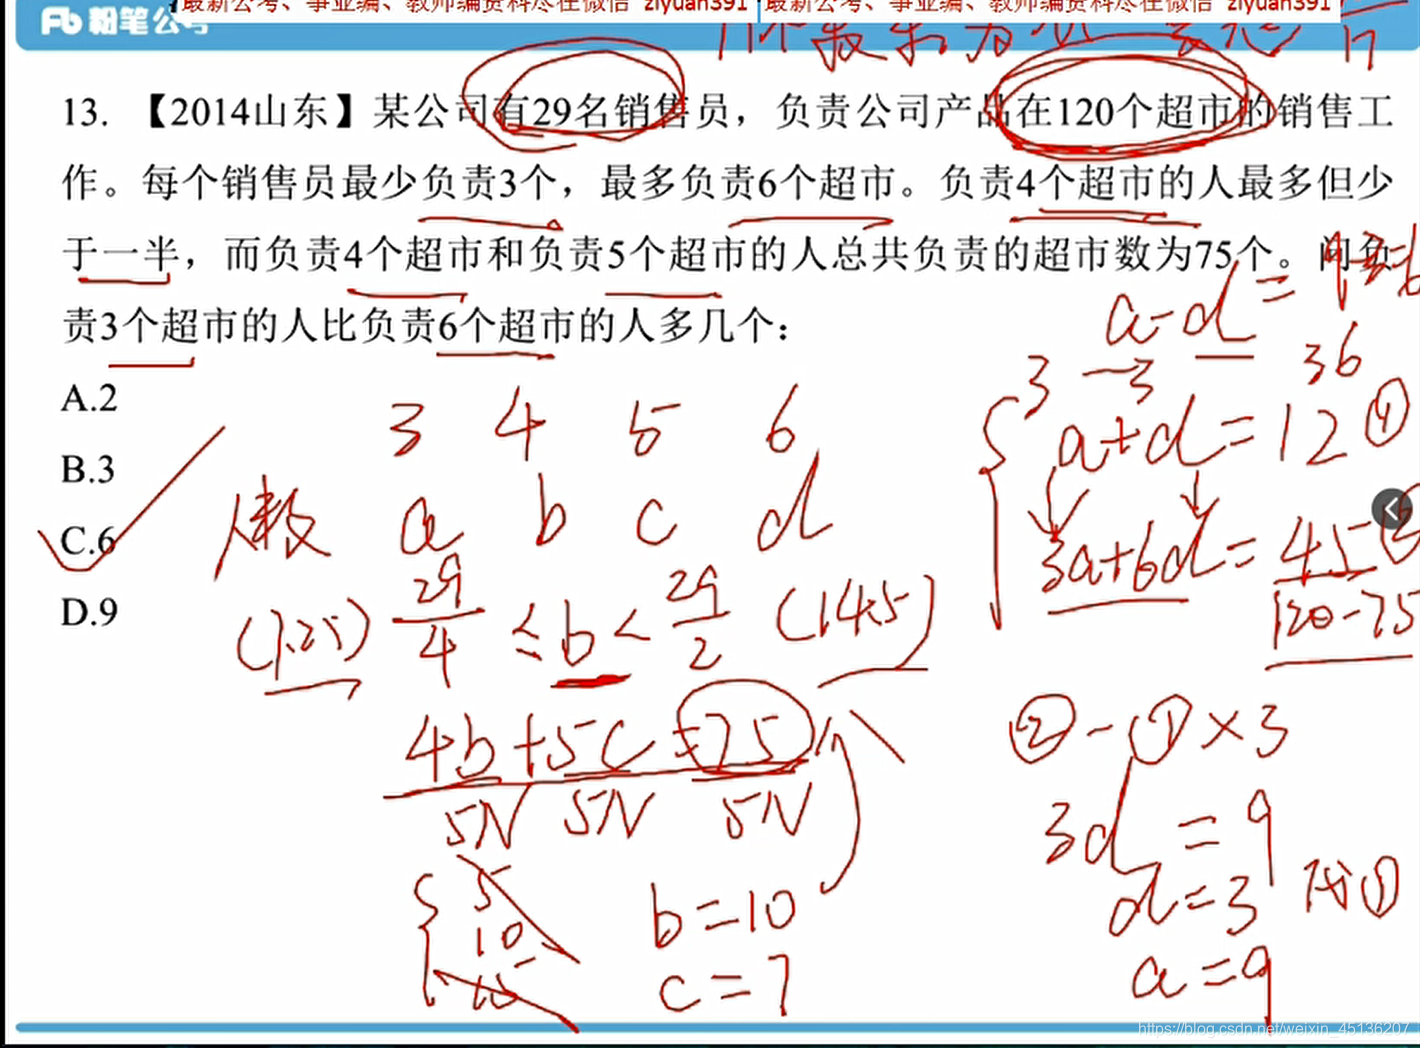 最新公考、事业编、教师编资料尽在微信 ziyuan391 最新公考、事业编、教师编资料尽在微信 ziyuan391
粉笔公考
13. 【2014山东】某公司有29名销售员，负责公司产品在120个超市的销售工
作。每个销售员最少负责3个，最多负责6个超市。负责4个超市的人最多但少
于一半，而负责4个超市和负责5个超市的人总共负责的超市数为75个。问负
责3个超市的人比负责6个超市的人多几个：
A.2
B.3
C.6
D.9
3 4 5 6
人数 a b c d
(7.25) 29/4 ≤ b < 29/2 (14.5)
4b+5c=75
5N 5N 5N
5
10
15
b=10
c=7
a-d=
3 3 36
a+d=12 ①
3a+6d=45 ②
120-75
②-①×3
3d=9
d=3 代①
a=9
https://blog.csdn.net/weixin_45136207